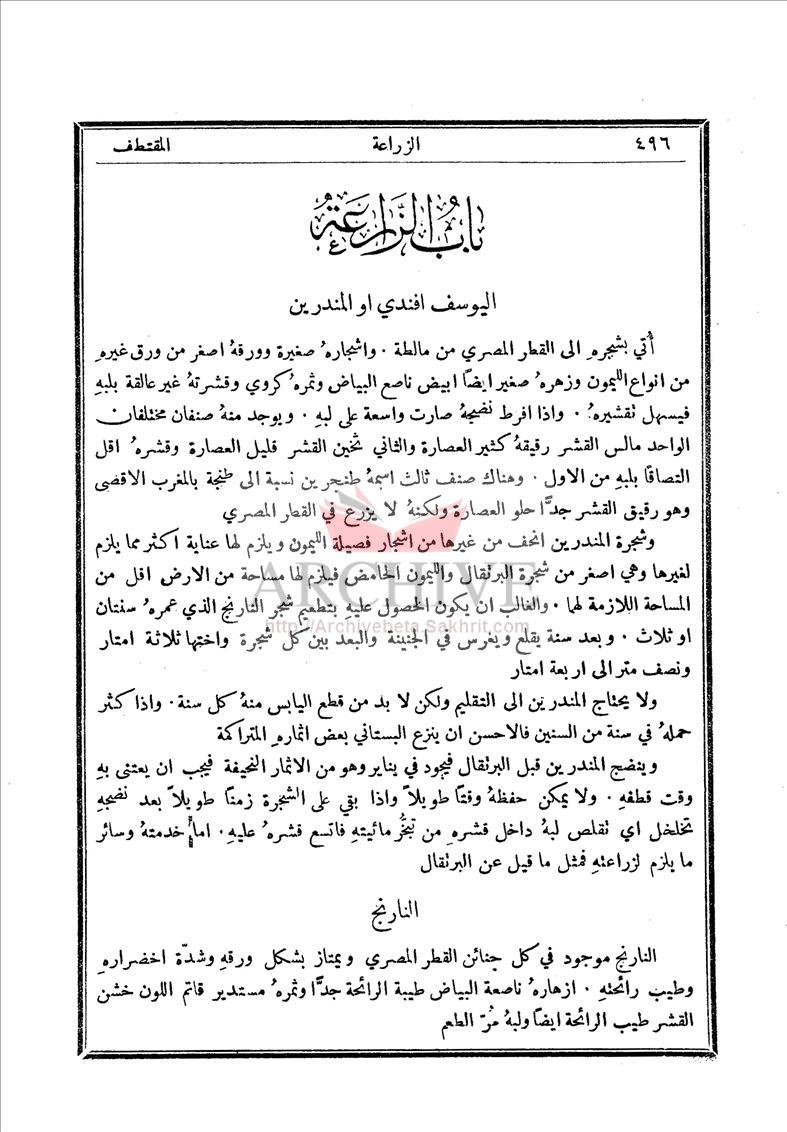 ٤٩٦ الزراعة المقتطف
باب الزراعة
اليوسف افندي او المندرين
أُتي بشجرهِ الى القطر المصري من مالطة ٠ واشجارهُ صغيرة وورقهُ اصغر من ورق غيرهِ
من انواع الليمون وزهرهُ صغير ايضًا ابيض ناصع البياض وثمرهُ كروي وقشرتهُ غير عالقة بلبهِ
فيسهل تقشيرهُ ٠ واذا افرط نضجهُ صارت واسعة على لبهِ ٠ ويوجد منهُ صنفان مختلفان
الواحد مالس القشر رقيقهُ كثير العصارة والثاني ثخين القشر قليل العصارة وقشرهُ اقل
التصاقًا بلبهِ من الاول ٠ وهناك صنف ثالث اسمهُ طنجرين نسبة الى طنجة بالمغرب الاقصى
وهو رقيق القشر جدًّا حلو العصارة ولكنهُ لا يزرع في القطر المصري
وشجرة المندرين انحف من غيرها من اشجار فصيلة الليمون ويلزم لها عناية اكثر مما يلزم
لغيرها وهي اصغر من شجرة البرتقال والليمون الحامض فيلزم لها مساحة من الارض اقل من
المساحة اللازمة لهما ٠ والغالب ان يكون الحصول عليهِ بتطعيم شجر النارنج الذي عمرهُ سنتان
او ثلاث ٠ وبعد سنة يقلع ويغرس في الجنينة والبعد بين كل شجرة واختها ثلاثة امتار
ونصف متر الى اربعة امتار
ولا يحتاج المندرين الى التقليم ولكن لا بد من قطع اليابس منهُ كل سنة ٠ واذا كثر
حملهُ في سنة من السنين فالاحسن ان ينزع البستاني بعض اثمارهِ المتراكمة
وينضج المندرين قبل البرتقال فيجود في يناير وهو من الاثمار النحيفة فيجب ان يعتنى بهِ
وقت قطفهِ ٠ ولا يمكن حفظهُ وقتًا طويلاً واذا بقي على الشجرة زمنًا طويلاً بعد نضجهِ
تخلخل اي تقلص لبهُ داخل قشرهِ من تبخُّر مائيتهِ فاتسع قشرهُ عليهِ ٠ اما خدمتهُ وسائر
ما يلزم لزراعتهِ فمثل ما قيل عن البرتقال
النارنج
النارنج موجود في كل جنائن القطر المصري ويمتاز بشكل ورقهِ وشدّة اخضرارهِ
وطيب رائحتهِ ٠ ازهارهُ ناصعة البياض طيبة الرائحة جدًّا وثمرهُ مستدير قاتم اللون خشن
القشر طيب الرائحة ايضًا ولبهُ مُرّ الطعم
ARCHIVE
http://Archivebeta.Sakhrit.com